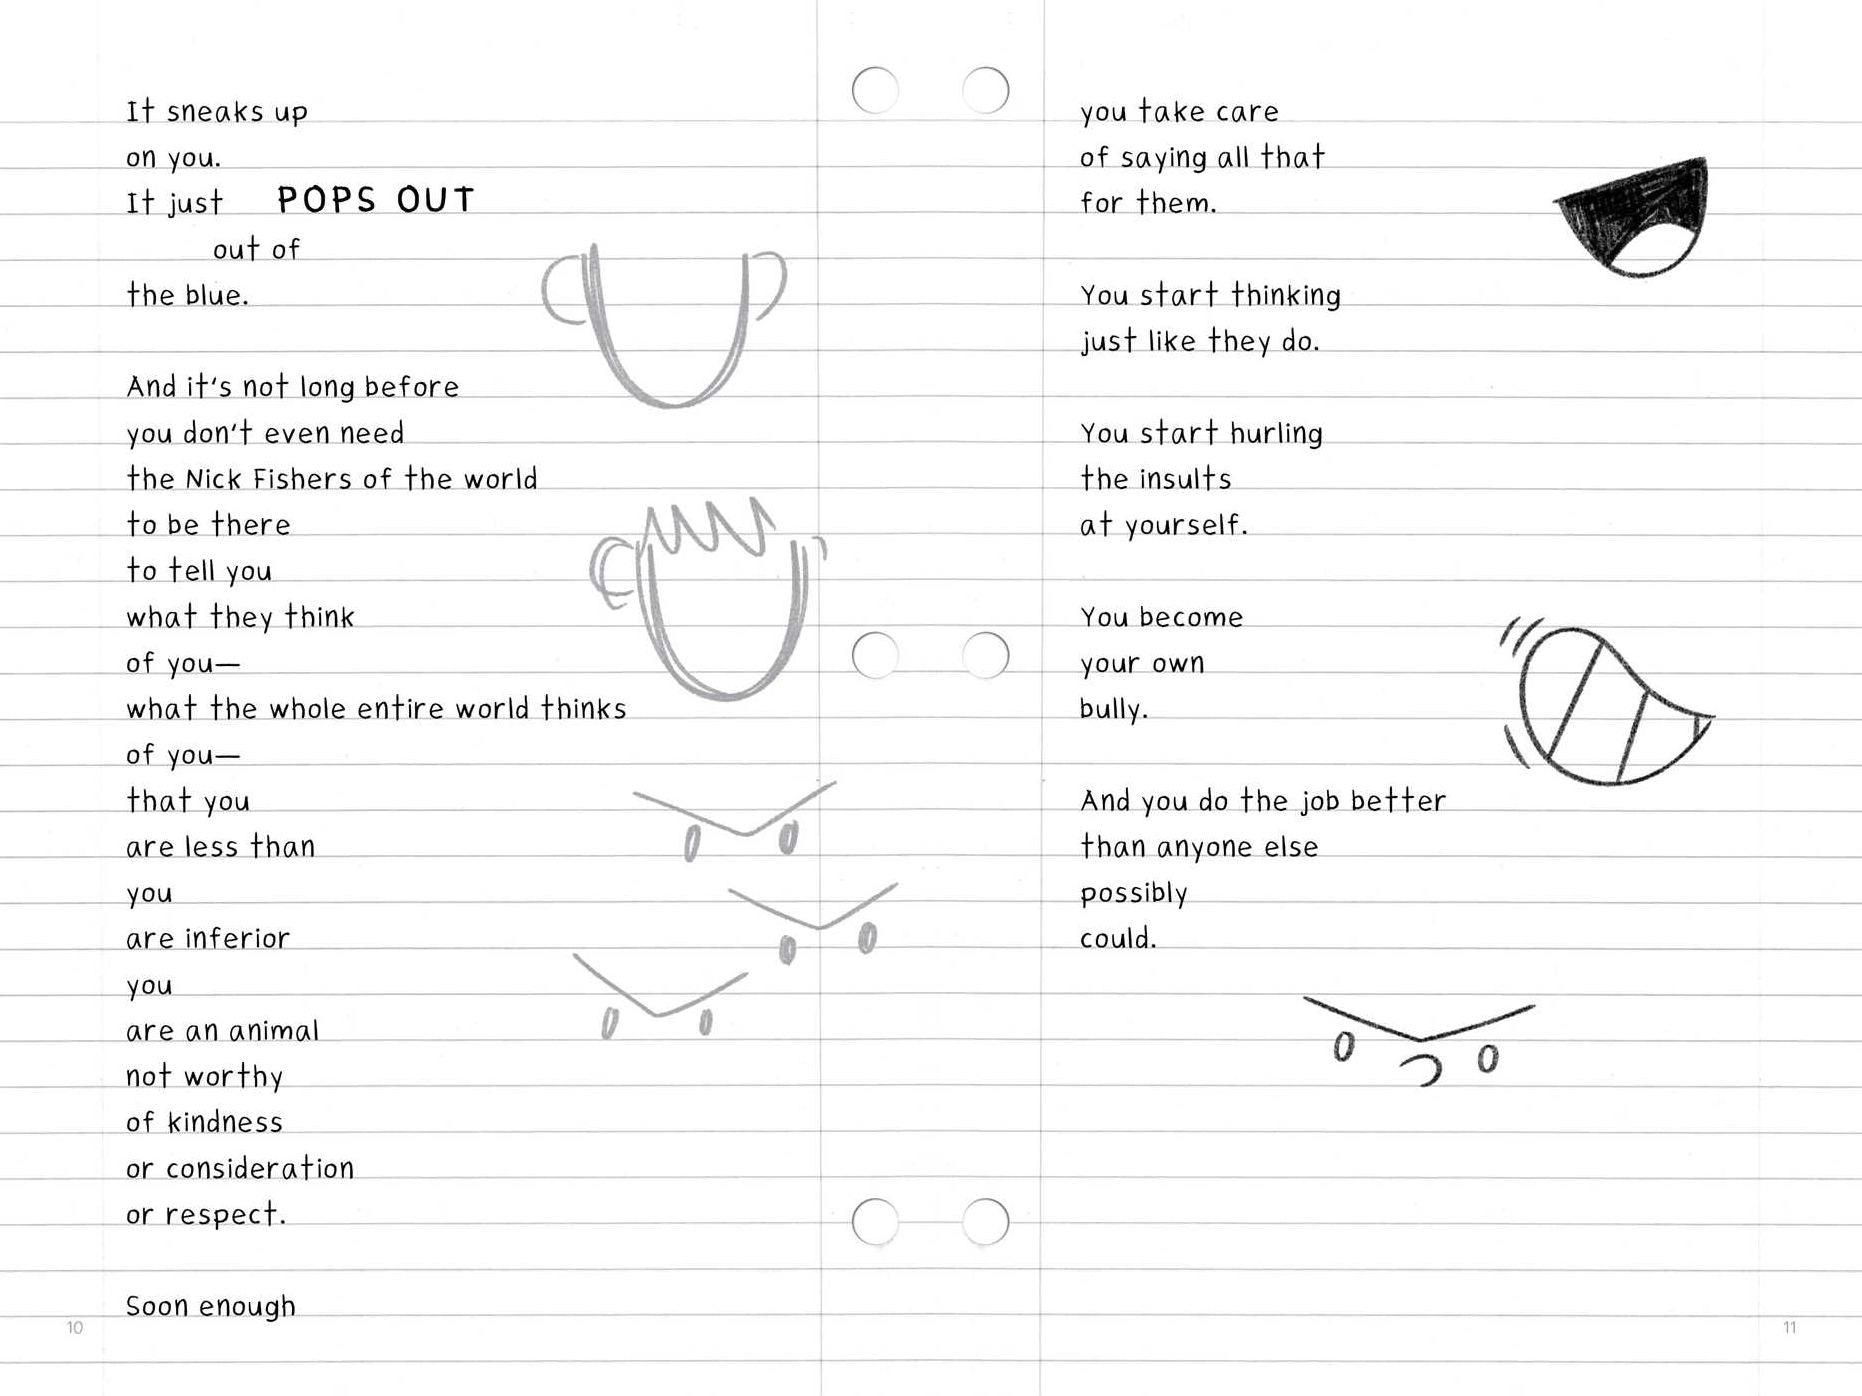 It sneaks up
on you.
It just POPS OUT
out of
the blue.
And it's not long before
you don't even need
the Nick Fishers of the world
to be there
to tell you
what they think
of you—
what the whole entire world thinks
of you—
that you
are less than
you
are inferior
you
are an animal
not worthy
of kindness
or consideration
or respect.
Soon enough
10
you take care
of saying all that
for them.
You start thinking
just like they do.
You start hurling
the insults
at yourself.
You become
your own
bully.
And you do the job better
than anyone else
possibly
could.
11